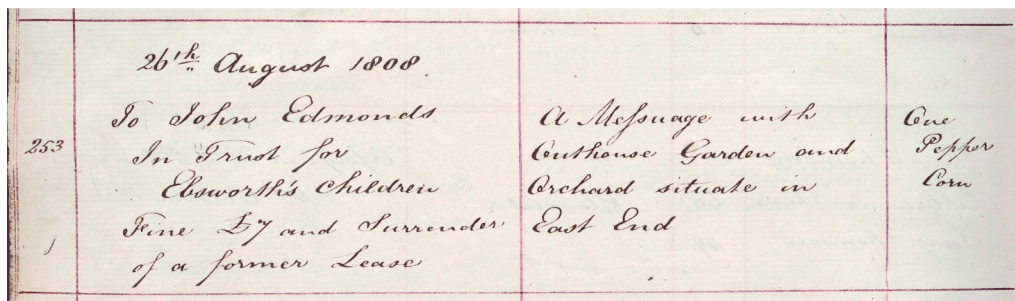 26th August 1808
253
To John Edmonds
In Trust for
Ebsworth's Children
Fine £7 and Surrender
of a former Lease
A Meſsuage with
Outhouse Garden and
Orchard situate in
East End
One
Pepper
Corn